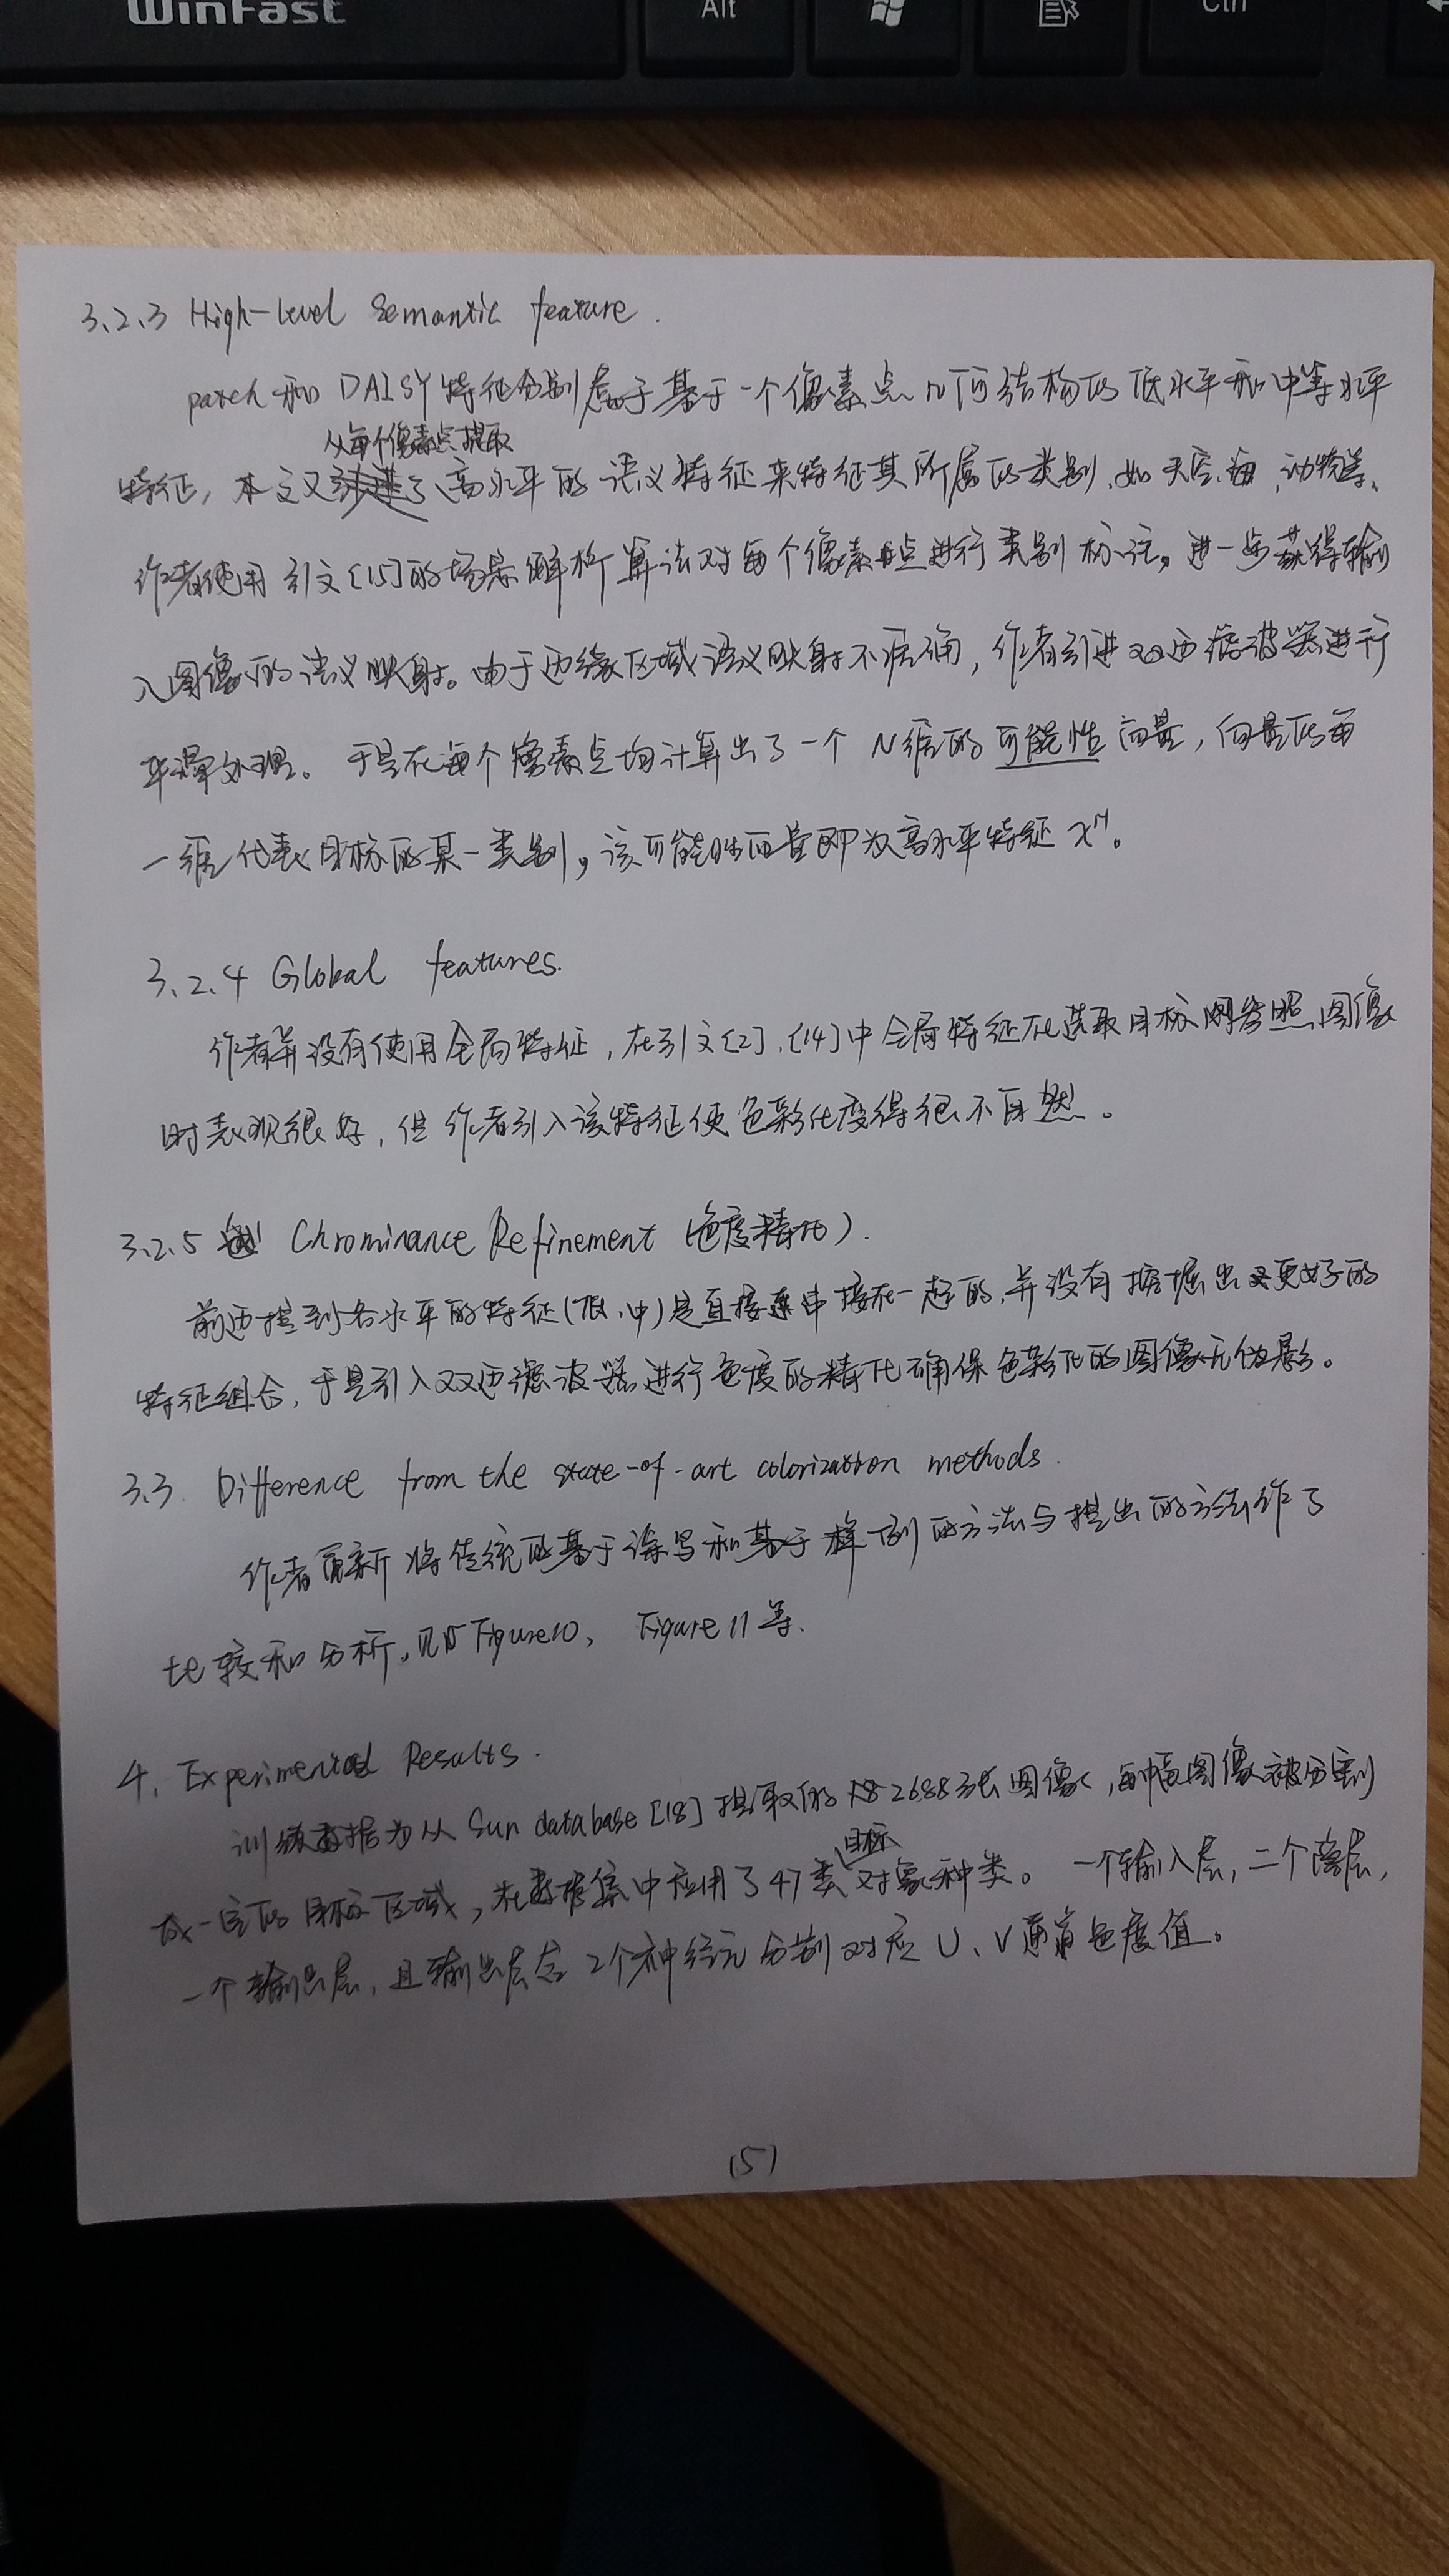 WinFast
Alt
Ctrl
3.2.3 High-level semantic feature.
patch和DAISY特征分别属于基于一个像素点几何结构的低水平和中等水平
从每个像素点提取
特征，本文又了高水平的语义特征来特征其所属的类别，如天空、海、动物等、
作者使用引文[15]的场景解析算法对每个像素点进行类别标注，进一步获得输
入图像的语义映射。由于边缘区域语义映射不准确，作者引进双边滤波器进行
平滑处理。于是在每个像素点均计算出了一个N维的可能性向量，向量的每
一维代表目标的某一类别，该可能性向量即为高水平特征 xᴴ。
3.2.4 Global features.
作者并没有使用全局特征，在引文[2]、[14]中全局特征在选取目标的参照图像
时表现很好，但作者引入该特征使色彩化变得很不自然。
3.2.5 Chrominance Refinement (色度精化).
前边提到各水平的特征(低、中)是直接连串接在一起的，并没有挖掘出更好的
特征组合，于是引入双边滤波器进行色度的精化确保色彩化的图像无伪影。
3.3. Difference from the state-of-art colorization methods.
作者重新将传统的基于涂写和基于样例的方法与提出的方法作了
比较和分析，见 Figure10、Figure 11等.
4. Experimental Results.
训练数据为从 Sun database [18] 提取的 2688张图像，每幅图像被分割
目标
成一定的目标区域，在数据集中应用了47类对象种类。一个输入层，二个隐层，
一个输出层，且输出层含2个神经元分别对应U、V通道色度值。
(5)